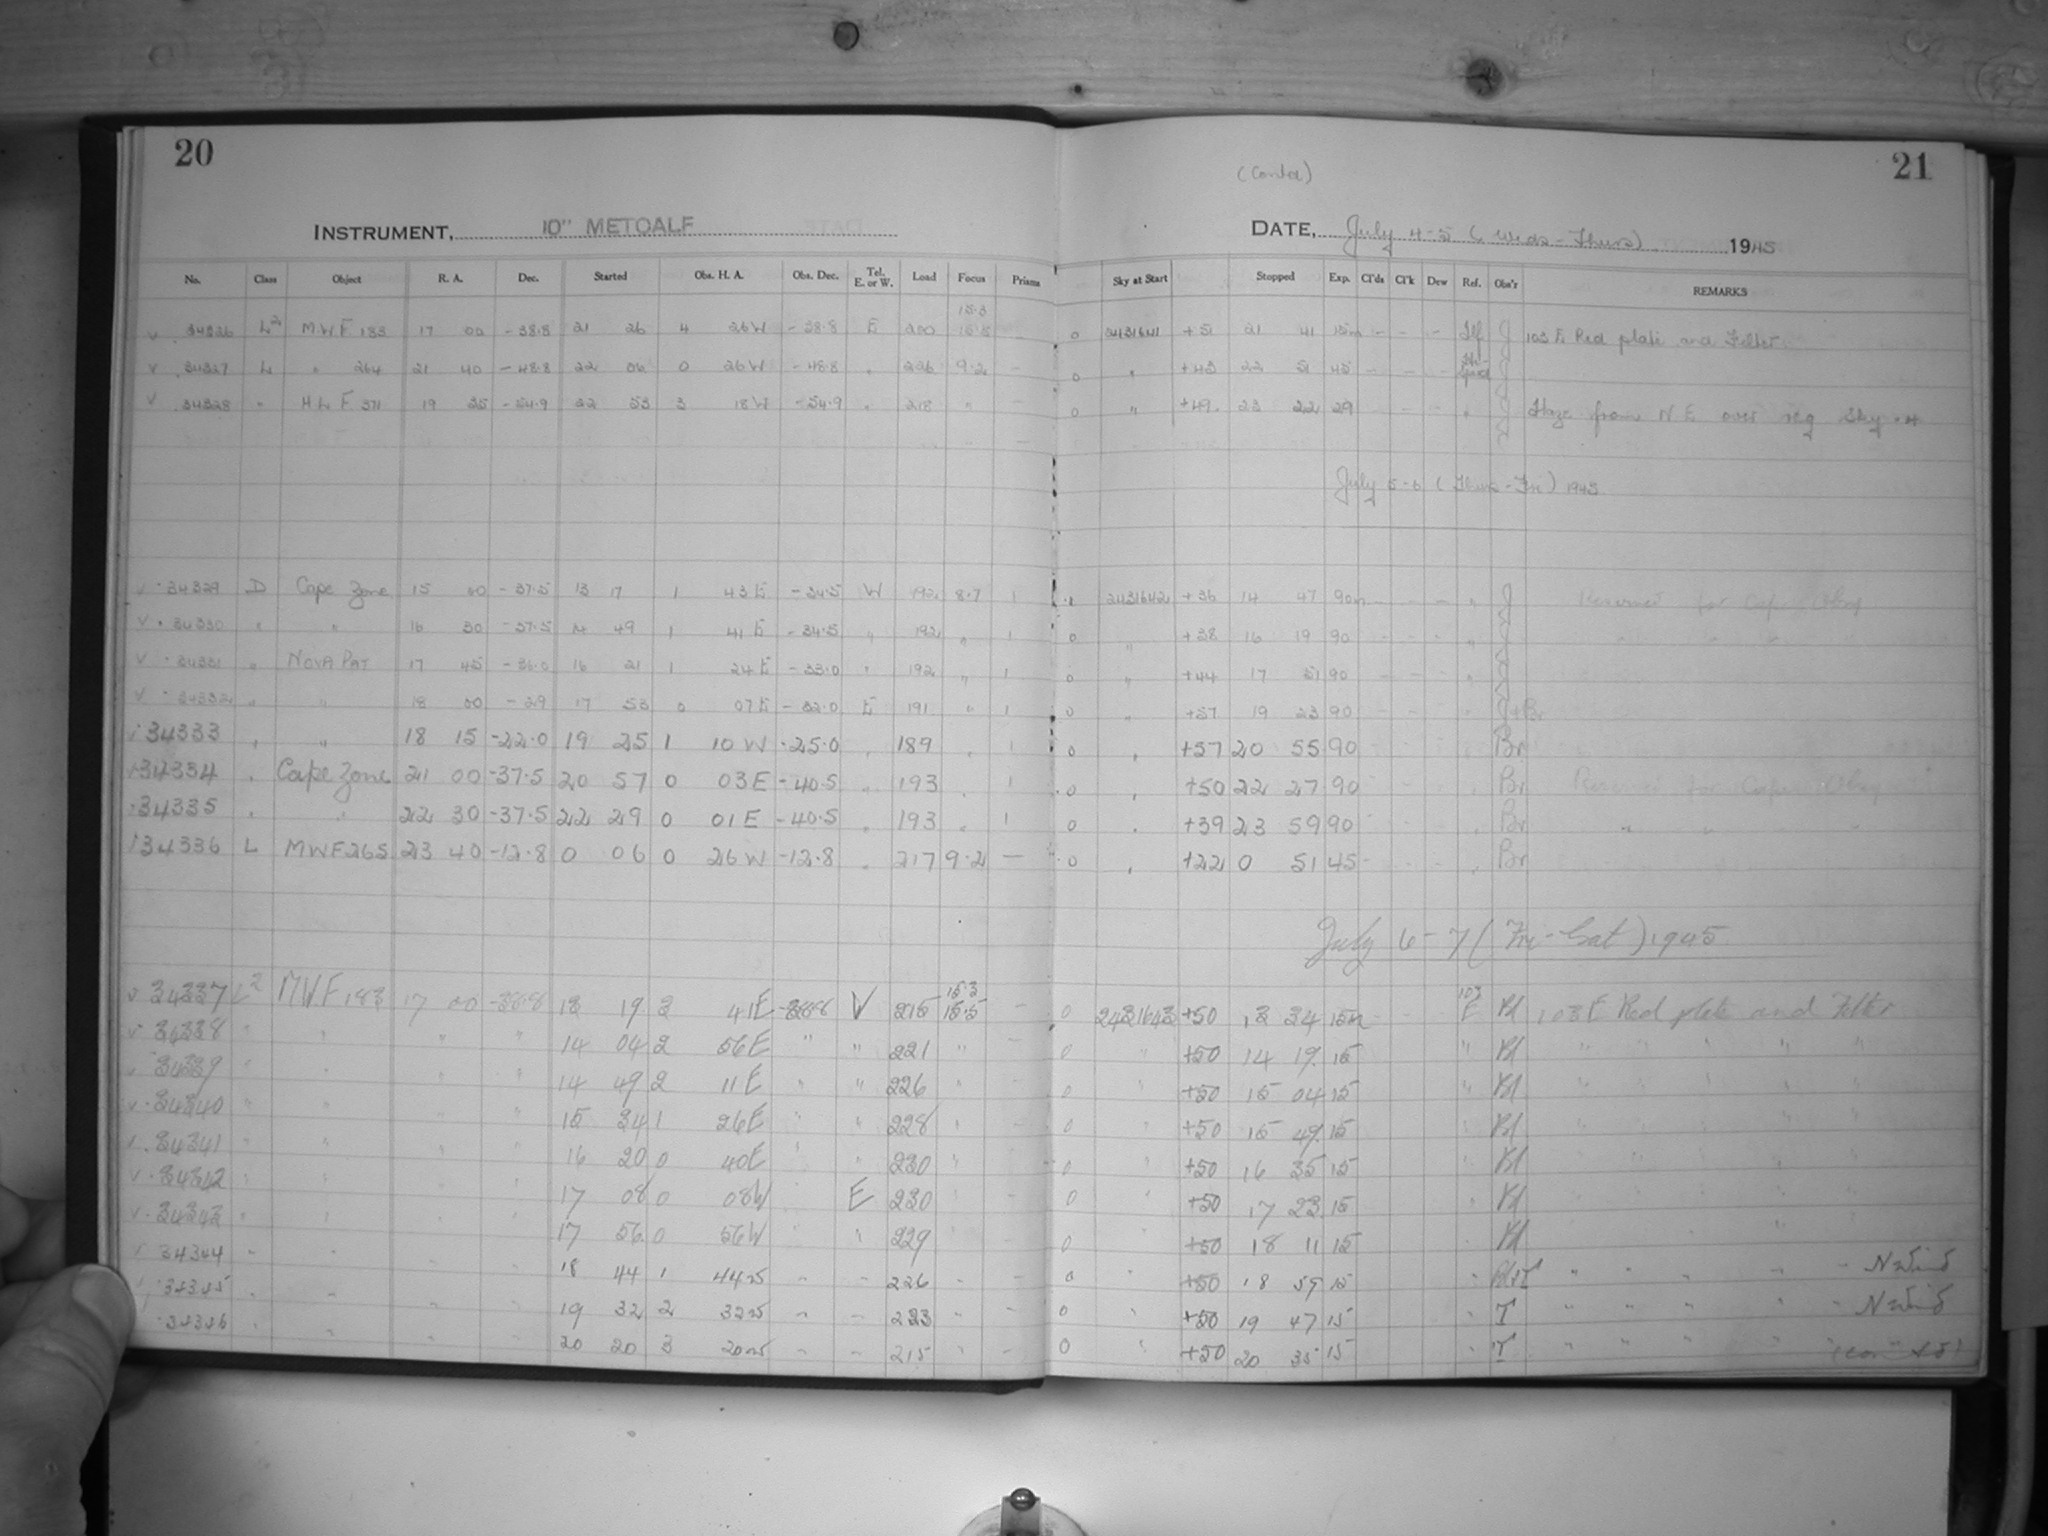 20
21
(Contd)
INSTRUMENT, 10" METCALF
DATE, July 4-5 (Weds-Thurs) 1945
No. Class Object R. A. Dec. Started Obs. H. A. Obs. Dec. Tel. E. or W. Load Focus Prisms Sky at Start Stopped Exp. Cl'ds Cl'k Dew Ref. Obs'r REMARKS
v 34326 L2 MWF 183 17 00 -38.8 21 26 4 26W -38.8 E 200 15.3 15.5 0 2431641 +51 21 41 15m - - - J 103 E Red plate and Filter
v 34327 L " 264 21 40 -48.8 22 06 0 26W -48.8 " 226 9.2 - 0 " +43 22 51 45 - - - J
v 34328 " H.L.F 371 19 35 -54.9 22 53 3 18W -54.9 " 218 " 0 " +49 23 22 29 - - - " J Haze from N E over reg Sky
July 5-6 (Thurs-Fri) 1945
v 34329 D Cape Zone 15 00 -37.5 13 17 1 43E -34.5 W 192 8.7 1 2431642 +36 14 47 90m - - - " J Reserved for Cape Obsy
v 34330 " " 16 30 -37.5 14 49 1 41E -34.5 " 192 " 1 0 " +38 16 19 90 - - - " J " " " "
v 34331 " NOVA PAT 17 45 -36.0 16 21 1 24E -33.0 " 192 " 1 0 " +44 17 51 90 - - - " J
v 34332 " " 18 00 -29 17 53 0 07E -32.0 E 191 " 1 0 " +37 19 23 90 - - - " J+Br
34333 " " 18 15 -22.0 19 25 1 10W -25.0 " 189 " 1 0 " +37 20 55 90 - - - " Br
34334 " Cape Zone 21 00 -37.5 20 57 0 03E -40.5 " 193 " 1 0 " +50 22 27 90 - - - " Br Reserved for Cape Obsy
34335 " " 22 30 -37.5 22 29 0 01E -40.5 " 193 " 1 0 " +39 23 59 90 - - - " Br " " "
34336 L MWF265 23 40 -12.8 0 06 0 26W -12.8 " 217 9.2 — 0 " +22 0 51 45 - " Br
July 6-7 (Fri-Sat) 1945
v 34337 L2 MWF 183 17 00 -38.8 13 19 3 41E -38.8 W 215 15.3 15.5 - 0 2431643 +50 13 34 15m - - - 103 E Bl 103E Red plate and Filter
v 34338 " " " " 14 04 2 56E " " 221 " - 0 " +50 14 19 15 " Bl " " " " "
v 34339 " " " " 14 49 2 11E " " 226 " - 0 " +50 15 04 15 " Bl " " " " "
v 34340 " " " " 15 34 1 26E " " 228 " - 0 " +50 15 49 15 " Bl " " " " "
v 34341 " " " " 16 20 0 40E " " 230 " - 0 " +50 16 35 15 " Bl " " " " "
v 34342 " " " " 17 08 0 08W " E 230 " - 0 " +50 17 23 15 " Bl " " " " "
v 34343 " " " " 17 56 0 56W " " 229 " - 0 " +50 18 11 15 " Bl " " " " "
34344 " " " " 18 44 1 44W " " 226 " - 0 " +50 18 59 15 " Bl+T " " " " " N wind
34345 " " " " 19 32 2 32W " " 223 " - 0 " +50 19 47 15 " T " " " " " N wind
34346 " " " " 20 20 3 20W " " 215 " - 0 " +50 20 35 15 " T " " " "